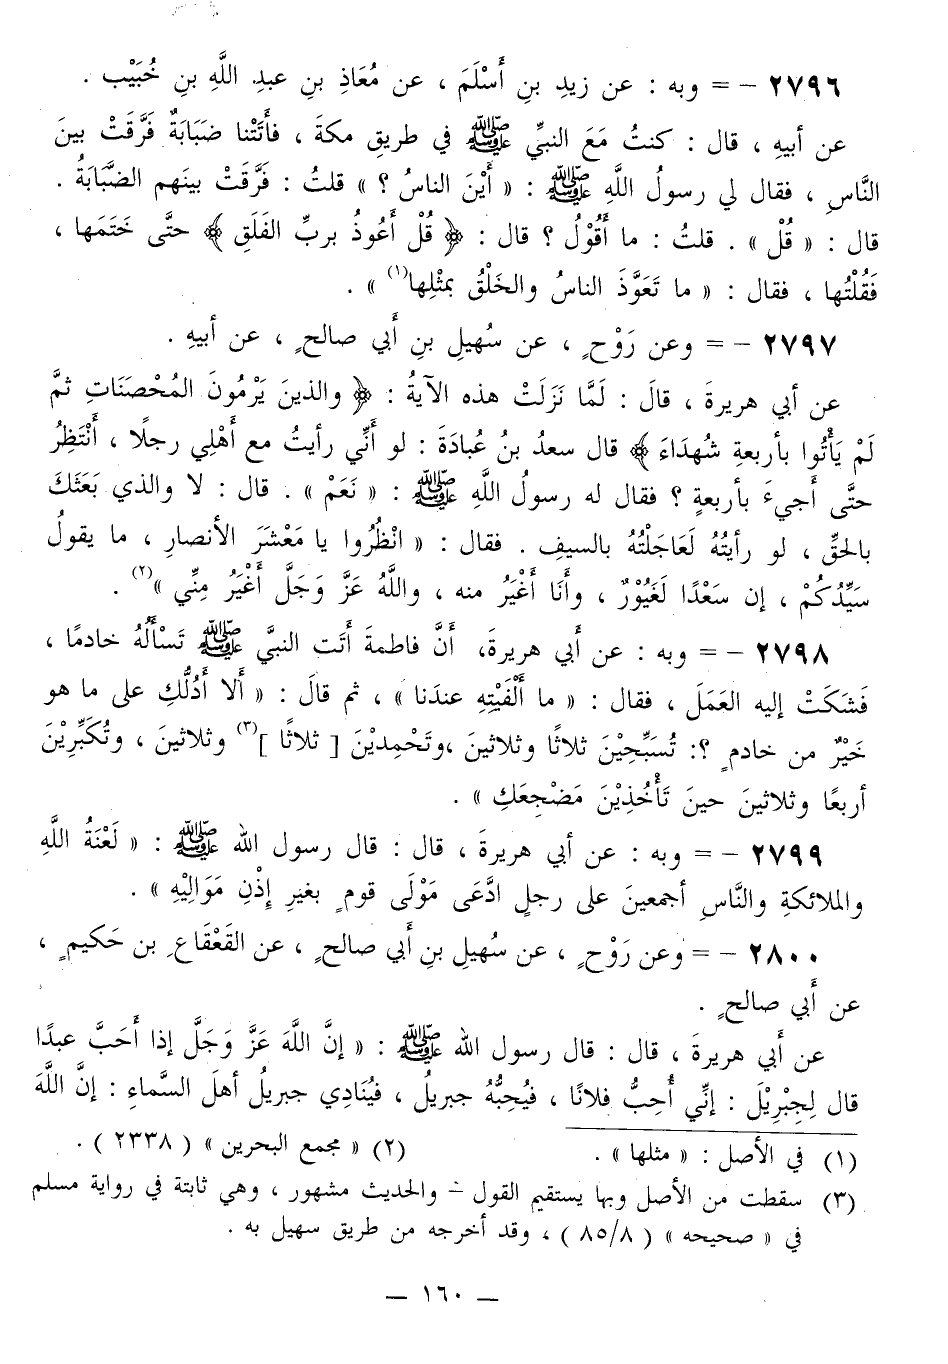 ٢٧٩٦ – = وبه : عن زيدِ بنِ أَسْلَمَ ، عن مُعَاذِ بنِ عبدِ اللَّهِ بنِ خُبَيْب .
عن أبيهِ ، قال : كنتُ مَعَ النبيِّ ﷺ في طريقِ مكةَ ، فأَتَتْنا ضَبَابَةٌ فَرَّقَتْ بينَ
النَّاسِ ، فقال لي رسولُ اللَّهِ ﷺ : « أَيْنَ الناسُ ؟ » قلتُ : فَرَّقَتْ بينَهم الضَّبَابَةُ .
قال : « قُلْ » . قلتُ : ما أَقُوْلُ ؟ قال : ﴿ قُلْ أَعُوذُ بربِّ الفَلَقِ ﴾ حتَّى خَتَمَها ،
فَقُلْتُها ، فقال : « ما تَعَوَّذَ الناسُ والخَلْقُ بمثْلِها(١) » .
٢٧٩٧ – = وعن رَوْحٍ ، عن سُهيلِ بنِ أَبي صالحٍ ، عن أبيهِ .
عن أبي هريرةَ ، قالَ : لَمَّا نَزَلَتْ هذه الآيةُ : ﴿ والذينَ يَرْمُونَ المُحْصَنَاتِ ثمَّ
لَمْ يَأْتُوا بأربعةِ شُهَدَاءَ ﴾ قال سعدُ بنُ عُبادَةَ : لو أنِّي رأيتُ مع أَهْلِي رجلًا ، أَنْتَظِرُ
حتَّى أَجيءَ بأربعةٍ ؟ فقال له رسولُ اللَّهِ ﷺ : « نَعَمْ » . قال : لا والذي بَعَثَكَ
بالحقِّ ، لو رأيتُهُ لَعَاجَلْتُهُ بالسيفِ . فقال : « انْظُرُوا يا مَعْشَرَ الأنصارِ ، ما يقولُ
سَيِّدُكُمْ ، إن سَعْدًا لَغَيُوْرٌ ، وأَنَا أَغْيَرُ منه ، واللَّهُ عَزَّ وَجَلَّ أَغْيَرُ مِنِّي »(٢) .
٢٧٩٨ – = وبه : عن أَبي هريرةَ، أَنَّ فاطمةَ أَتَت النبيَّ ﷺ تَسْأَلُهُ خادمًا ،
فَشَكَتْ إليه العَمَلَ ، فقال : « ما أَلْفَيْتِهِ عندَنا » ، ثم قالَ : « أَلا أَدُلُّكِ على ما هو
خَيْرٌ من خادمٍ ؟: تُسَبِّحِيْنَ ثلاثًا وثلاثينَ ،وتَحْمِديْنَ [ ثلاثًا ](٣) وثلاثينَ ، وتُكَبِّرِيْنَ
أربعًا وثلاثينَ حينَ تَأْخُذِيْنَ مَضْجِعَكِ » .
٢٧٩٩ – = وبه : عن أبي هريرةَ ، قال : قال رسول الله ﷺ : « لَعْنَةُ اللَّهِ
والملائكةِ والنَّاسِ أجمعينَ على رجلٍ ادَّعَى مَوْلَى قومٍ بغيرِ إِذْنِ مَوَالِيْهِ » .
٢٨٠٠ – = وعن رَوْحٍ ، عن سُهيلِ بنِ أَبي صالحٍ ، عن القَعْقَاعِ بن حَكيمٍ ،
عن أَبي صالحٍ .
عن أَبي هريرةَ ، قال : قال رسول الله ﷺ : « إنَّ اللَّهَ عَزَّ وَجَلَّ إذا أَحَبَّ عبدًا
قال لِجِبْرِيْلَ : إنِّي أُحِبُّ فلانًا ، فَيُحِبُّهُ جبريلُ ، فَيُنَادِي جبريلُ أهلَ السَّماءِ : إنَّ اللَّهَ
(١) في الأصل : « مثلها » . (٢) « مجمع البحرين » ( ٢٣٣٨ ) .
(٣) سقطت من الأصل وبها يستقيم القول – والحديث مشهور ، وهي ثابتة في رواية مسلم
في « صحيحه » ( ٨٥/٨ ) ، وقد أخرجه من طريق سهيل به .
— ١٦٠ —